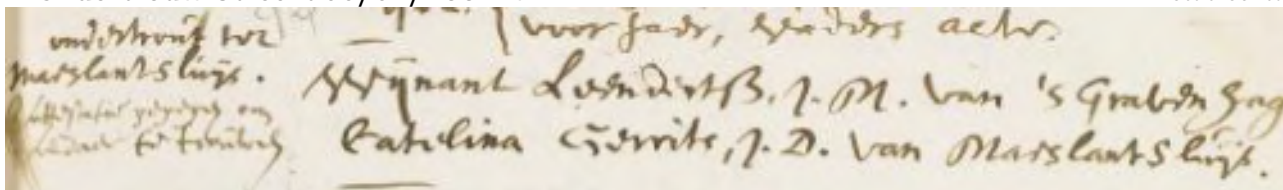 ondertrout tot
Maeslantsluijs.
voor haer, vaders acte.
Wijnant Leenderts, J. M. van 's Gravenhag
Catelina Gerrits, J. D. van Maeslantsluijs.
te trouwen